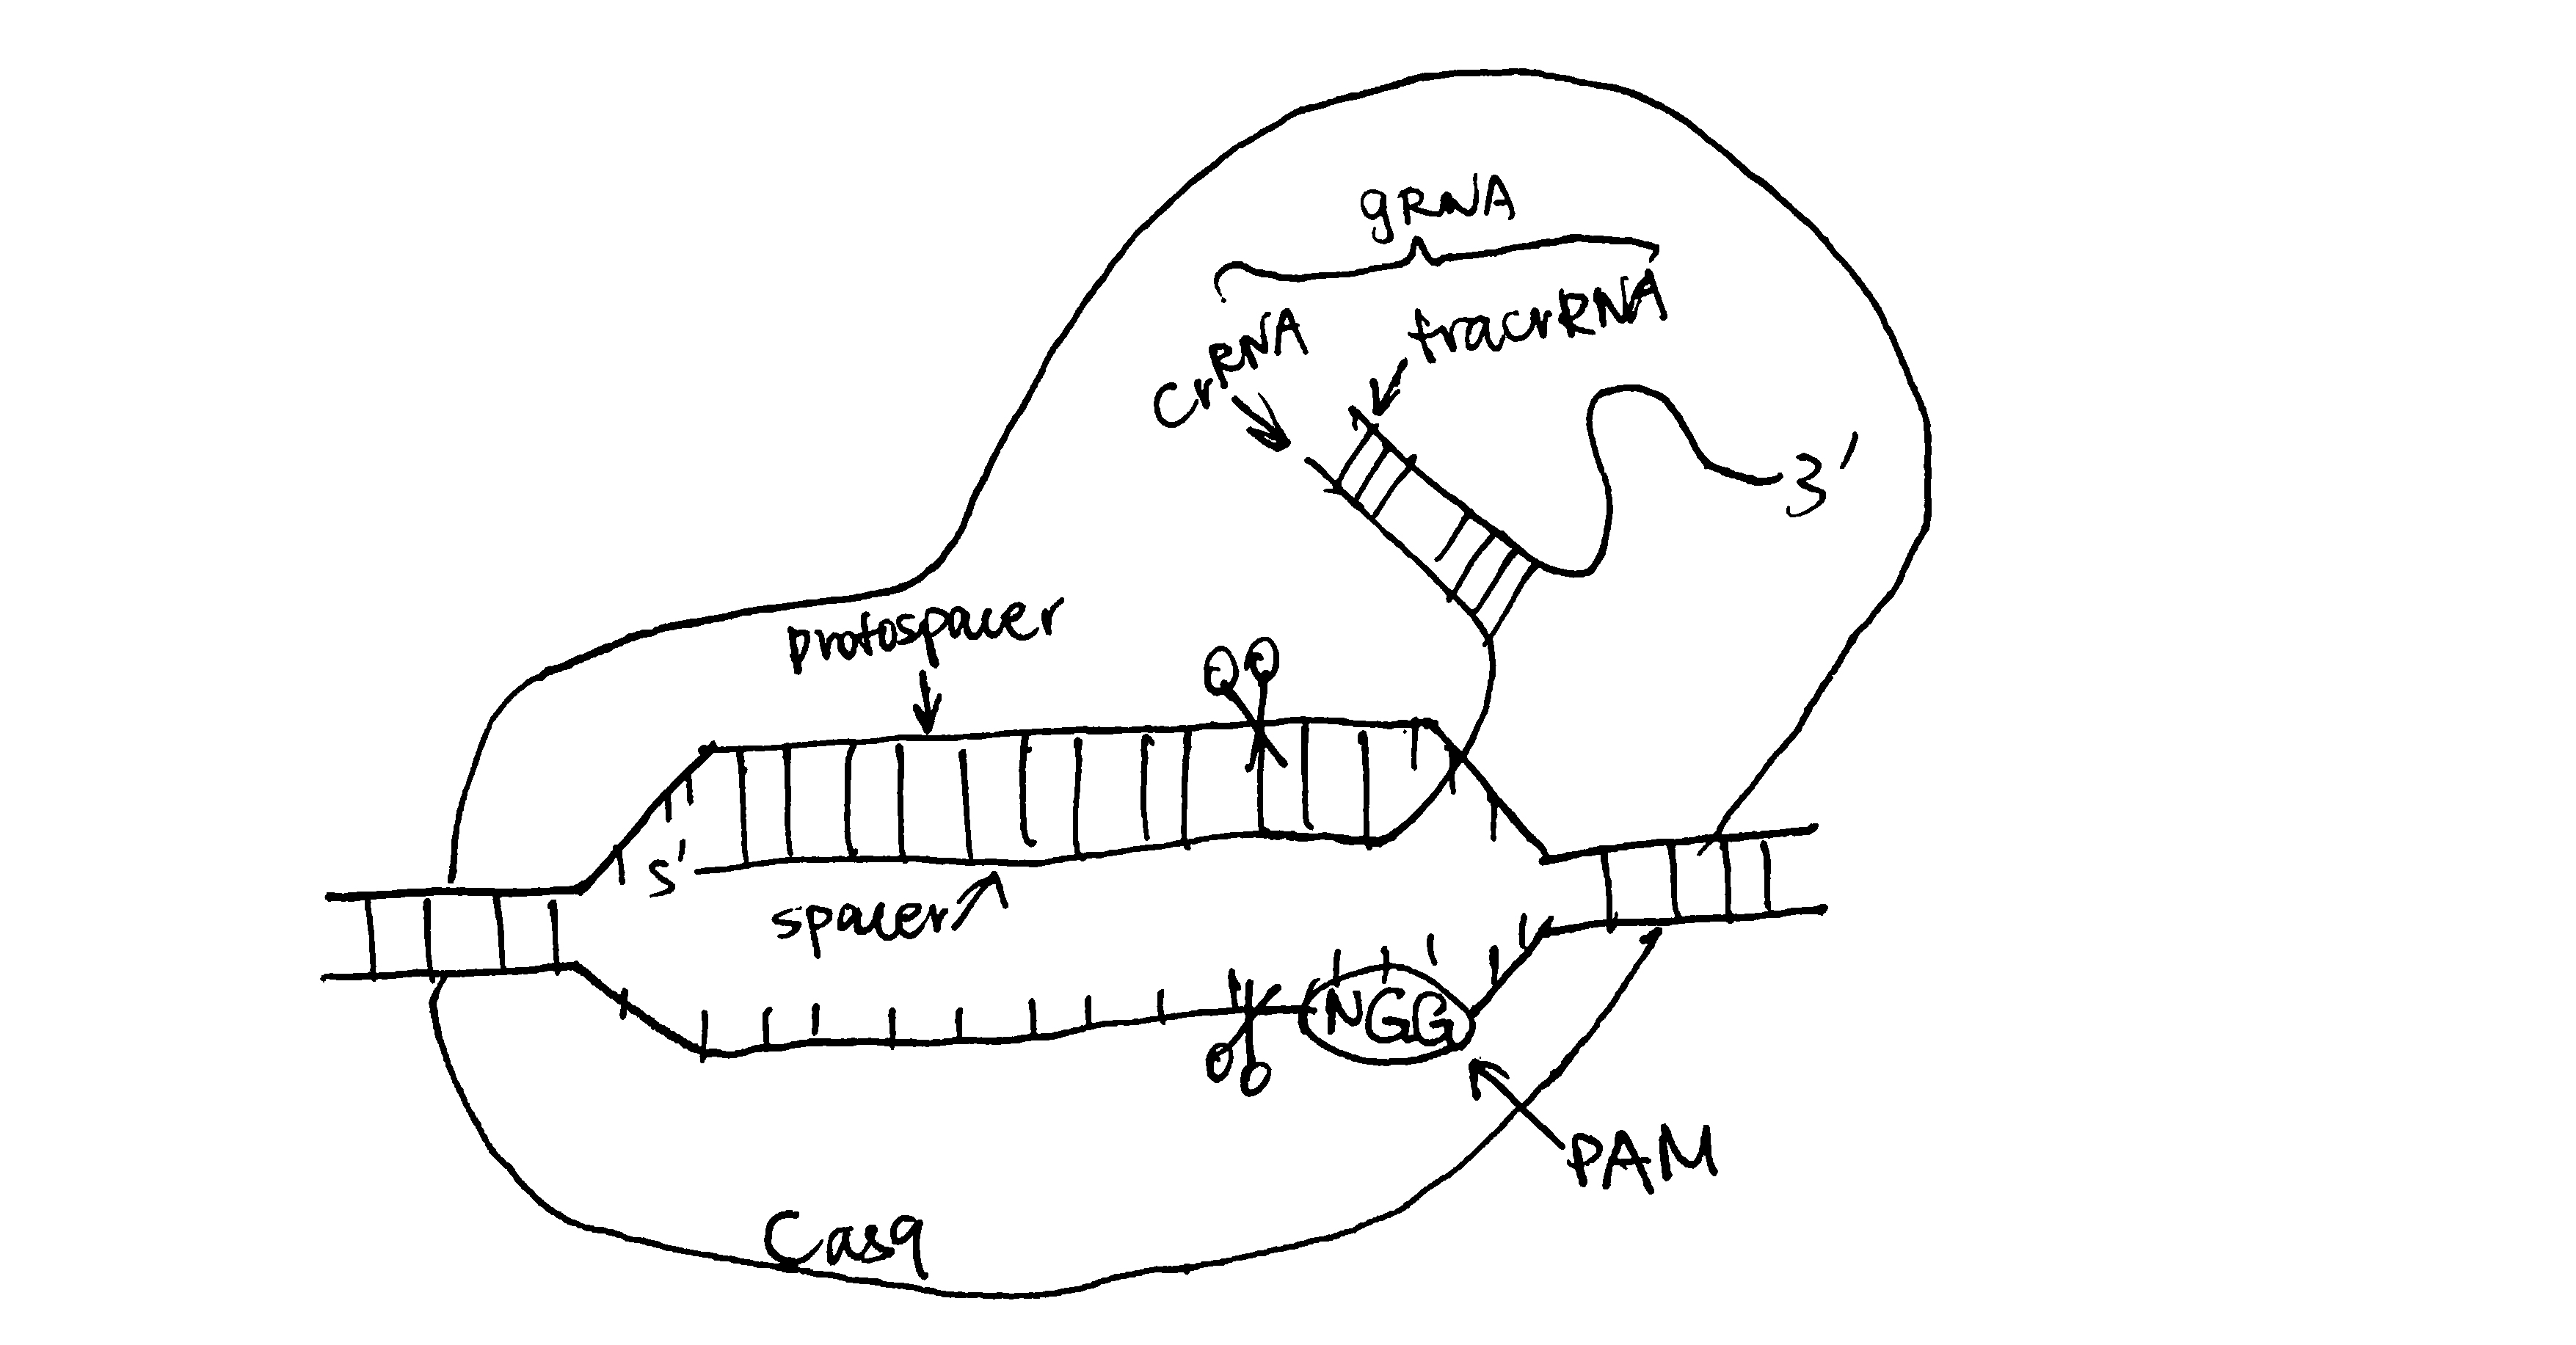 gRNA
crRNA
tracrRNA
3'
protospacer
5'
spacer
NGG
PAM
Cas9